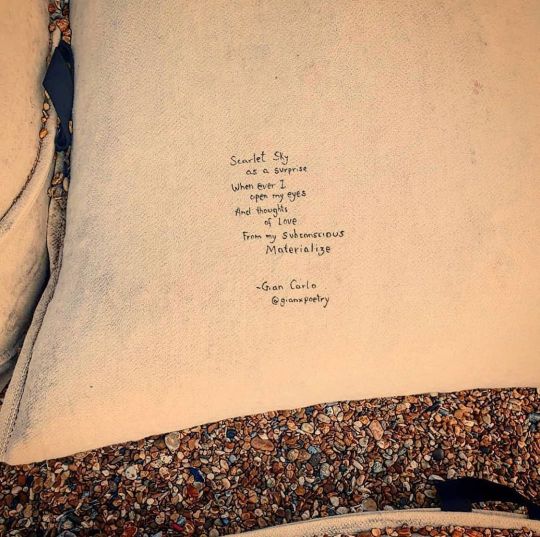 Scarlet Sky
as a surprise
When ever I
open my eyes
And thoughts
of love
From my Subconscious
Materialize
-Gian Carlo
@gianxpoetry